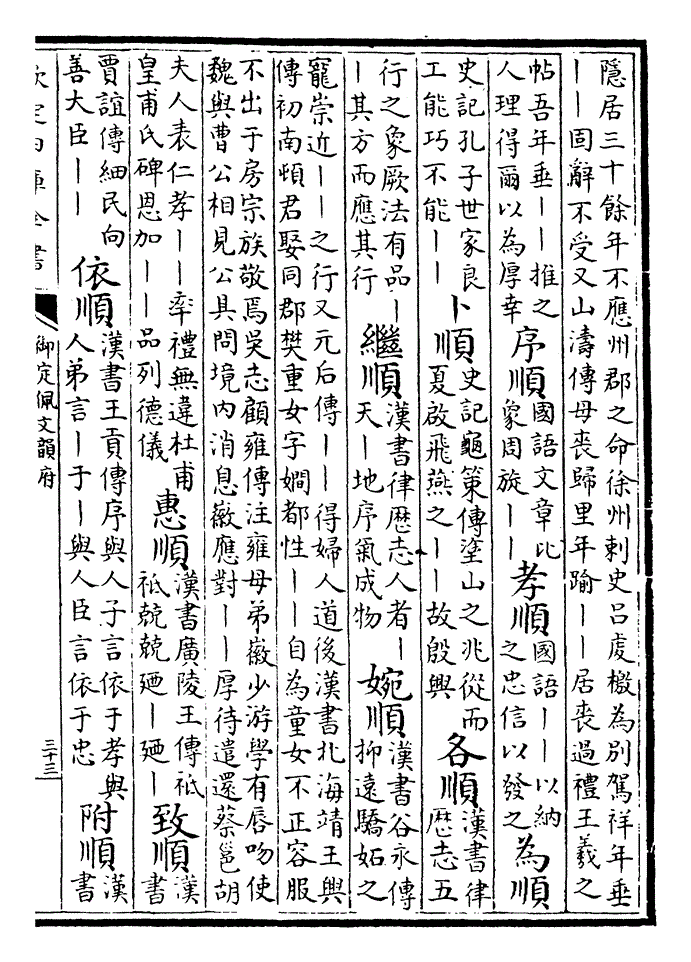 隱居三十餘年不應州郡之命徐州刺史吕虔檄為別駕祥年垂
丨丨固辭不受又山濤傳母喪歸里年踰丨丨居喪過禮王羲之
帖吾年垂丨丨推之
人理得爾以為厚幸
序順
國語文章比
象周旋丨丨
孝順
國語丨丨以納
之忠信以發之
為順
史記孔子世家良
工能巧不能丨丨
卜順
史記龜策傳塗山之兆從而
夏啟飛燕之丨丨故殷興
各順
漢書律
歴志五
行之象厥法有品丨
丨其方而應其行
繼順
漢書律歴志人者丨
天丨地序氣成物
婉順
漢書谷永傳
抑遠驕妬之
寵崇近丨丨之行又元后傳丨丨得婦人道後漢書北海靖王興
傳初南頓君娶同郡樊重女字嫺都性丨丨自為童女不正容服
不出于房宗族敬焉吳志顧雍傳注雍母弟徽少游學有唇吻使
魏與曹公相見公具問境内消息徽應對丨丨厚待遣還蔡邕胡
夫人表仁孝丨丨率禮無違杜甫
皇甫氏碑恩加丨丨品列德儀
惠順
漢書廣陵王傳祗
祗兢兢廼丨廼丨
致順
漢
書
賈誼傳細民向
善大臣丨丨
依順
漢書王貢傳序與人子言依于孝與
人弟言丨于丨與人臣言依于忠
附順
漢
書
欽定四庫全書
御定佩文韻府
三十三